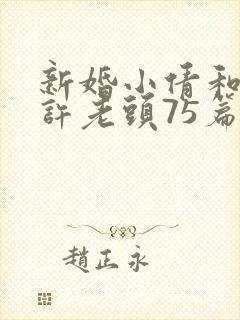 新婚小倩和
許老頭75篇
趙正永